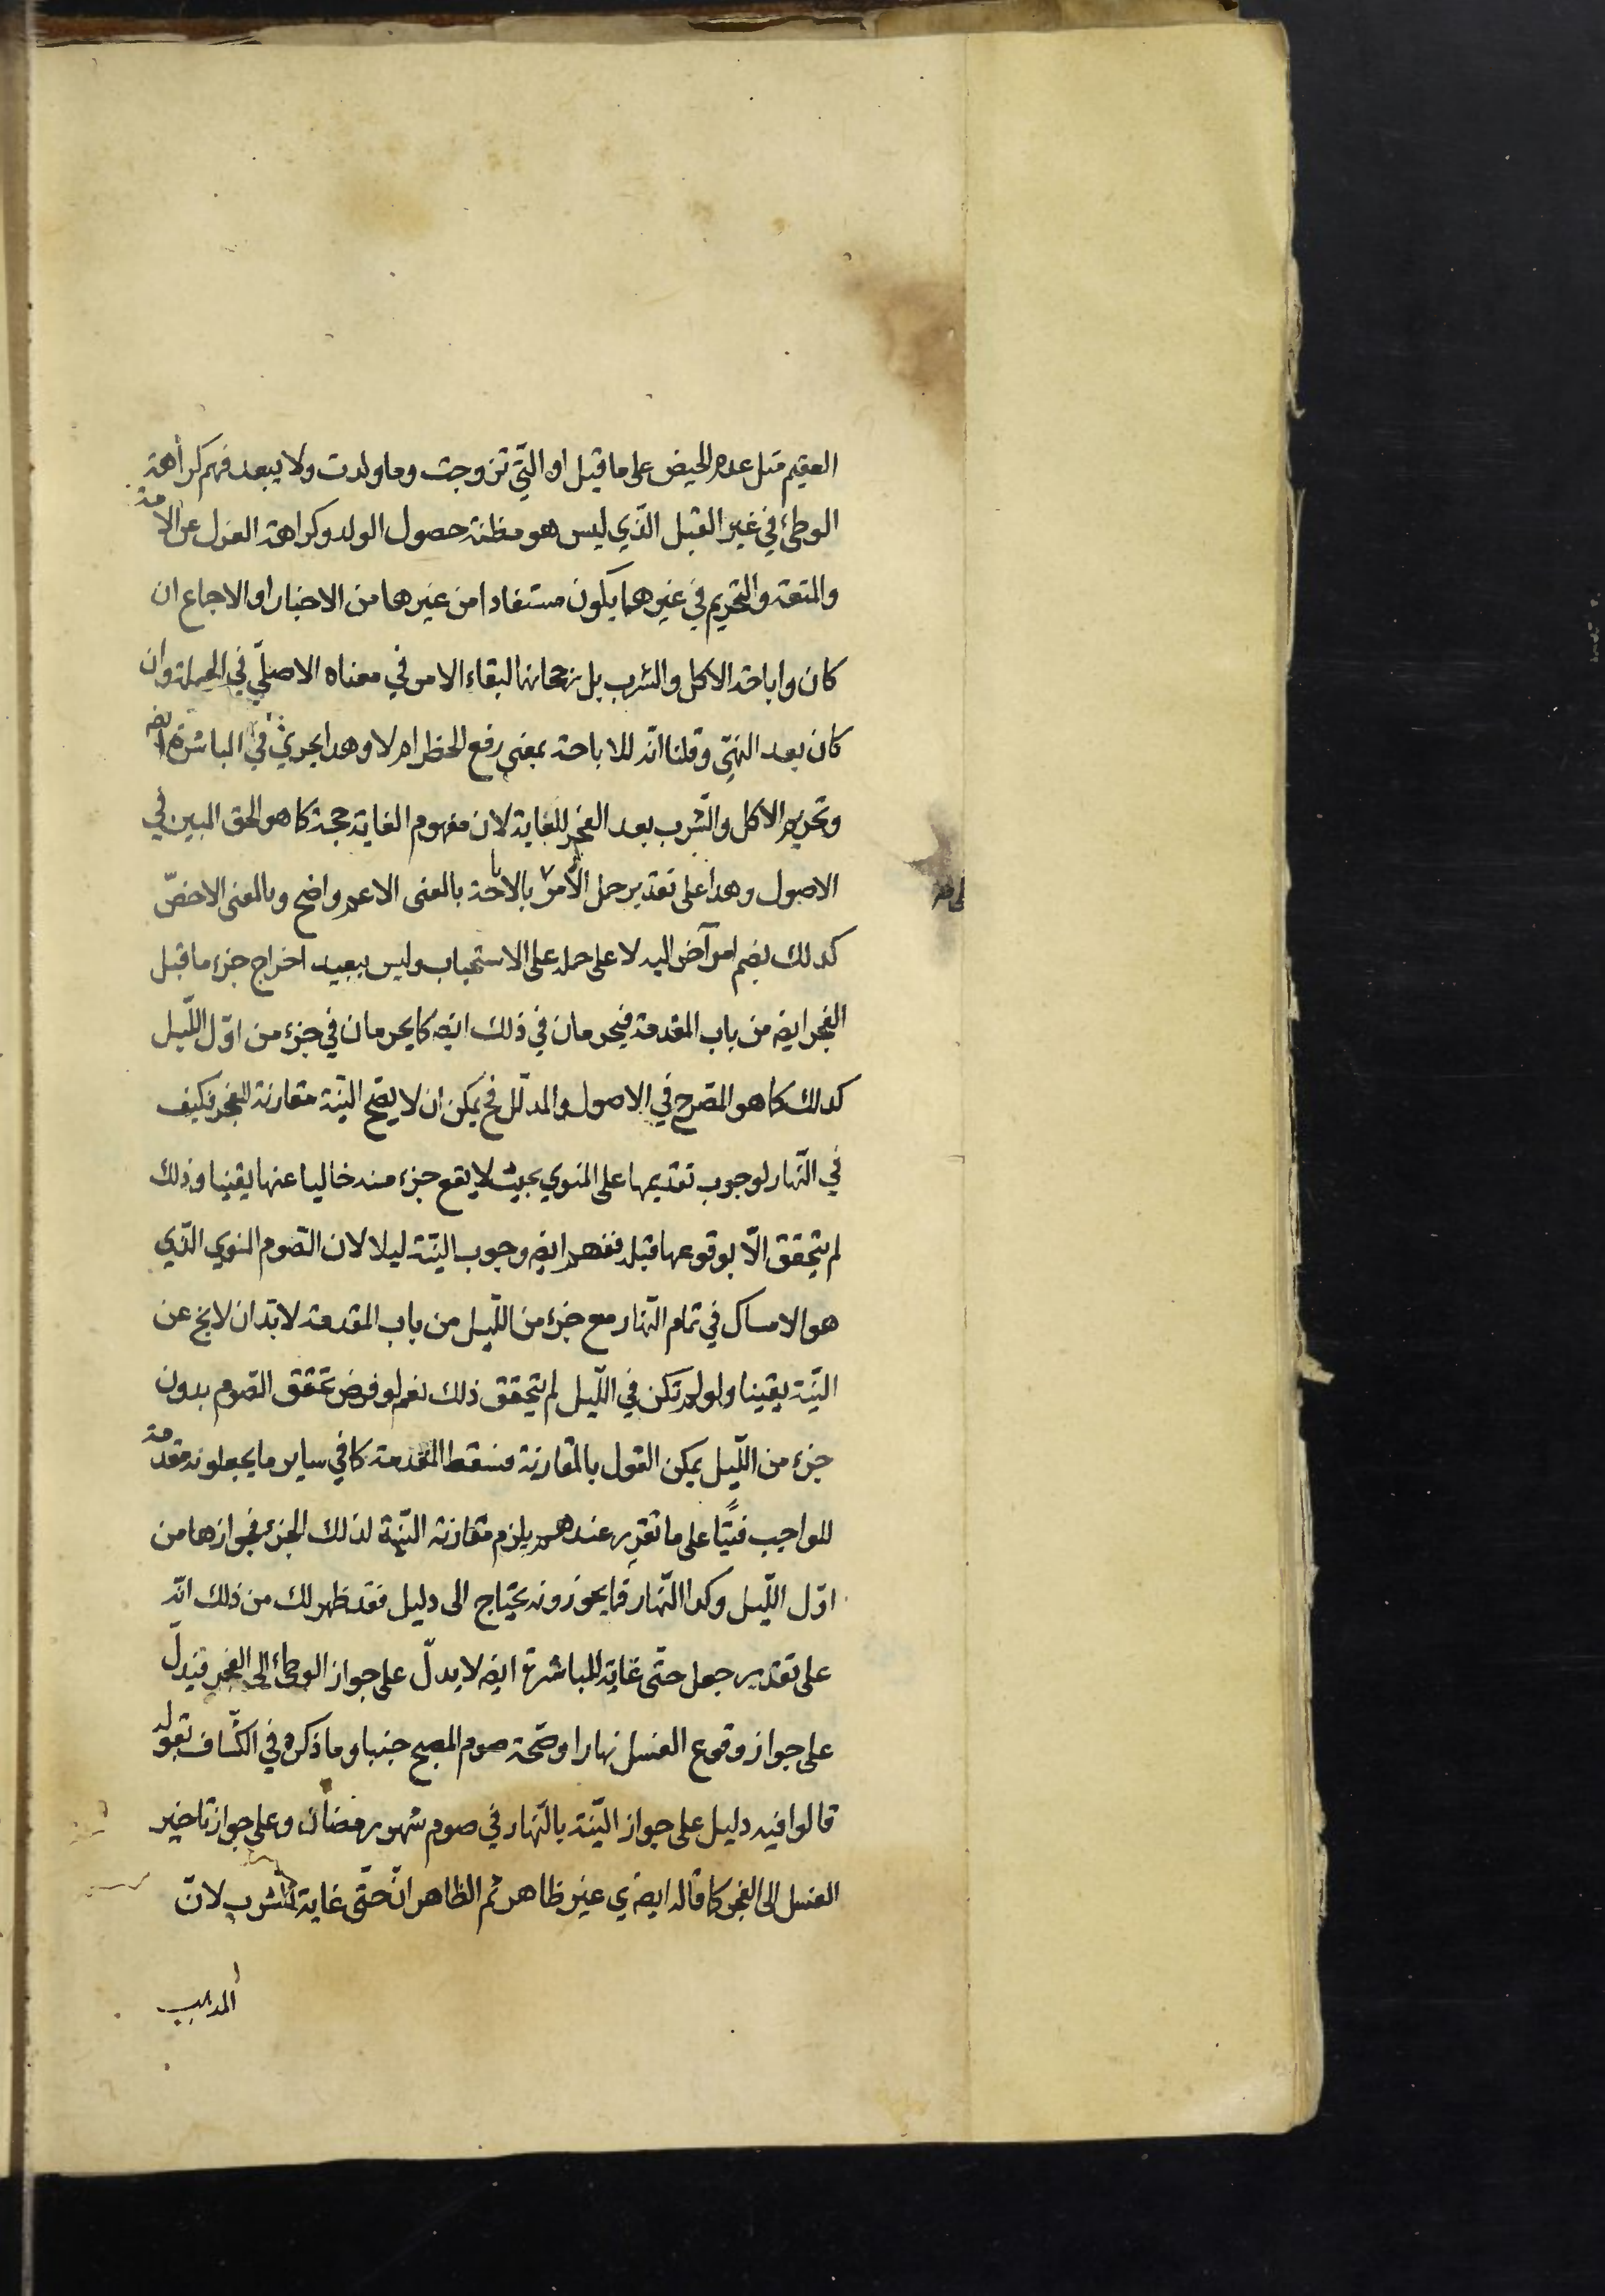 العقيم مثل عدم الحيض على ما قيل او الّتي تزوجت وما ولدت ولا يبعد فهم كراهة
الوطئ في غير القبل الّذي ليس هو مظنة حصول الولد وكراهة العزل عن الامة
والمتعة والتحريم في غيرهما يكون مستفادا من غيرها من الاخبار او الاجماع ان
كان واباحة الاكل والشرب بل رجحانها لبقاء الامر في معناه الاصلّي في الجملة وان
كان بعد النهي وقلنا انّه للاباحة بمعنى رفع الحظر ام لا وهذا يجري في المباشرة ايضا
وتحريم الاكل والشّرب بعد الفجر للغاية لان مفهوم الغاية حجة كما هو الحق المبين في
الاصول وهذا على تقدير حمل الامر بالاباحة بالمعنى الاعم واضح وبالمعنى الاخصّ
كذلك بضم امر آخر اليه لا على حمله على الاستحباب وليس ببعيد اخراج جزء ما قبل
الفجر ايضه من باب المقدمة فيحرمان في ذلك ايضه كما يحرمان في جزء من اوّل اللّيل
كذلك كما هو المصّرح في الاصول والمدلّل فح يمكن ان لا يصّح النيّة مقارنة للفجر فكيف
في النّهار لوجوب تقديمها على المنوي بحيث لا يقع جزء منه خاليا عنها يقينا وذلك
لم يتحقق الّا بوقوعها قبله ففهم ايضه وجوب النيّة ليلا لان الصّوم المنوي الذّي
هو الامساك في تمام النّهار مع جزء من اللّيل من باب المقدمة لا بّد ان لا يخ عن
النيّة يقينا ولو لم تكن في اللّيل لم يتحقق ذلك نعم لو فرض تحقق الصّوم بدون
جزء من اللّيل يمكن القول بالمقارنة فتسقط المقدمة كما في ساير ما يجعلونه مقدمة
للواجب فبناء على ما تقرر عندهم يلزم مقارنة النيّة لذلك الجزء فجوازها من
اوّل اللّيل وكذا النّهار فما يجوزونه يحتاج الى دليل فقد ظهر لك من ذلك انّه
على تقدير جعل حتّى غاية للمباشرة ايضه لا يدلّ على جواز الوطئ الى الفجر فيدلّ
على جواز وقوع الغسل نهارا وصّحة صوم المصبح جنبا وما ذكره في الكشّاف بقوله
قالوا فيه دليل على جواز النيّة بالنّهار في صوم شهر رمضان وعلى جواز تاخير
الغسل الى الفجر كما قاله ايضه ي غير ظاهر ثم الظاهر انّ حتّى غاية للشّرب لانّ
المذهب